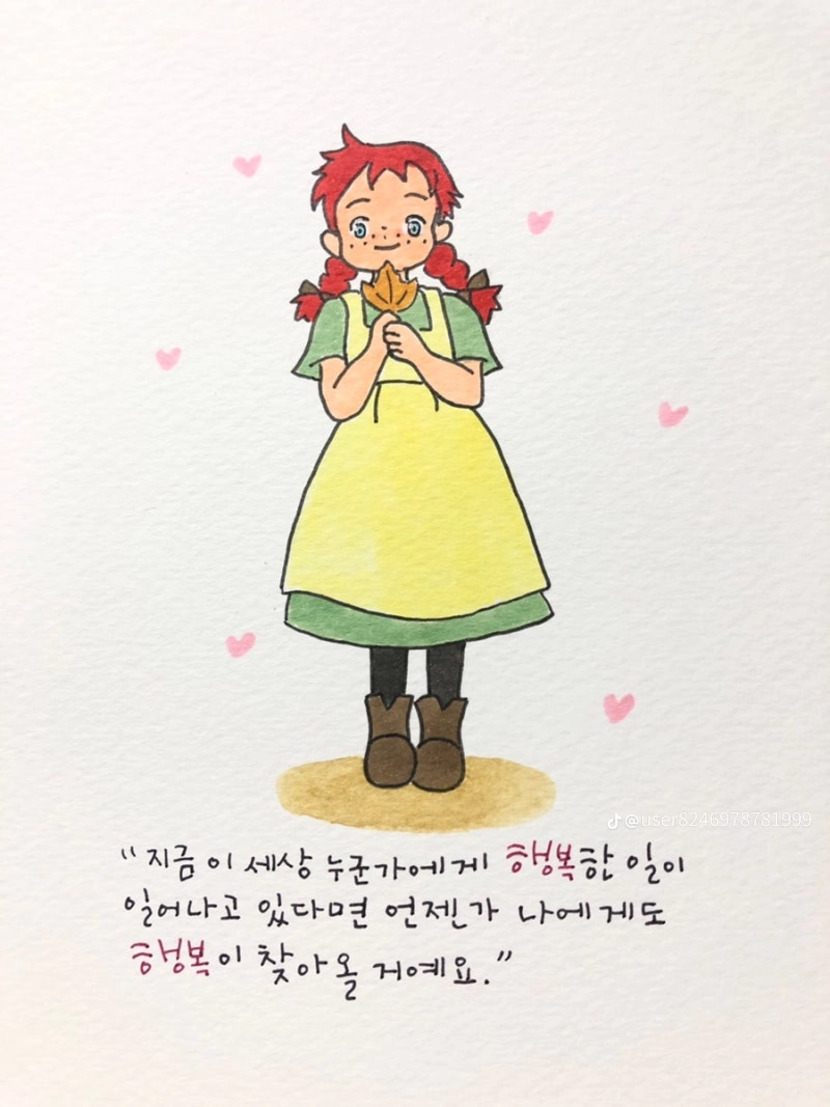 @user8246978781999
“지금 이 세상 누군가에게 행복한 일이
일어나고 있다면 언젠가 나에게도
행복이 찾아올 거예요.”